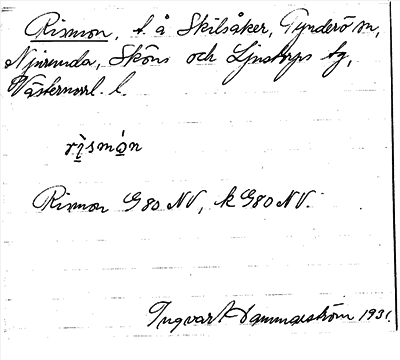 Rismon, t. å Skilsåker, Tynderö sn,
Njurunda, Sköns och Ljustorps tg,
Västernorrl. l.
rismón
Rismon G80 NV, k G80 NV.
Ingvar Hammarström 1931.